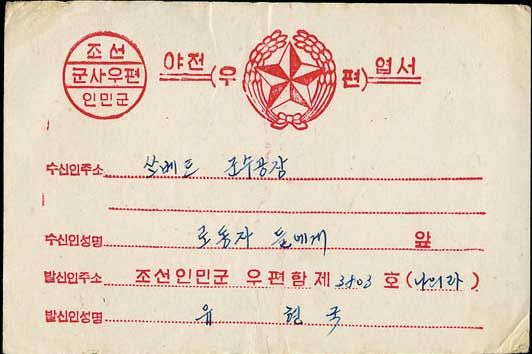 조선
군사우편
인민군
야전(우편)엽서
수신인주소 쏘베트 군수공장
수신인성명 로동자 들에게 앞
발신인주소 조선인민군 우편함 제 3803 호 (나의라)
발신인성명 유 현 국